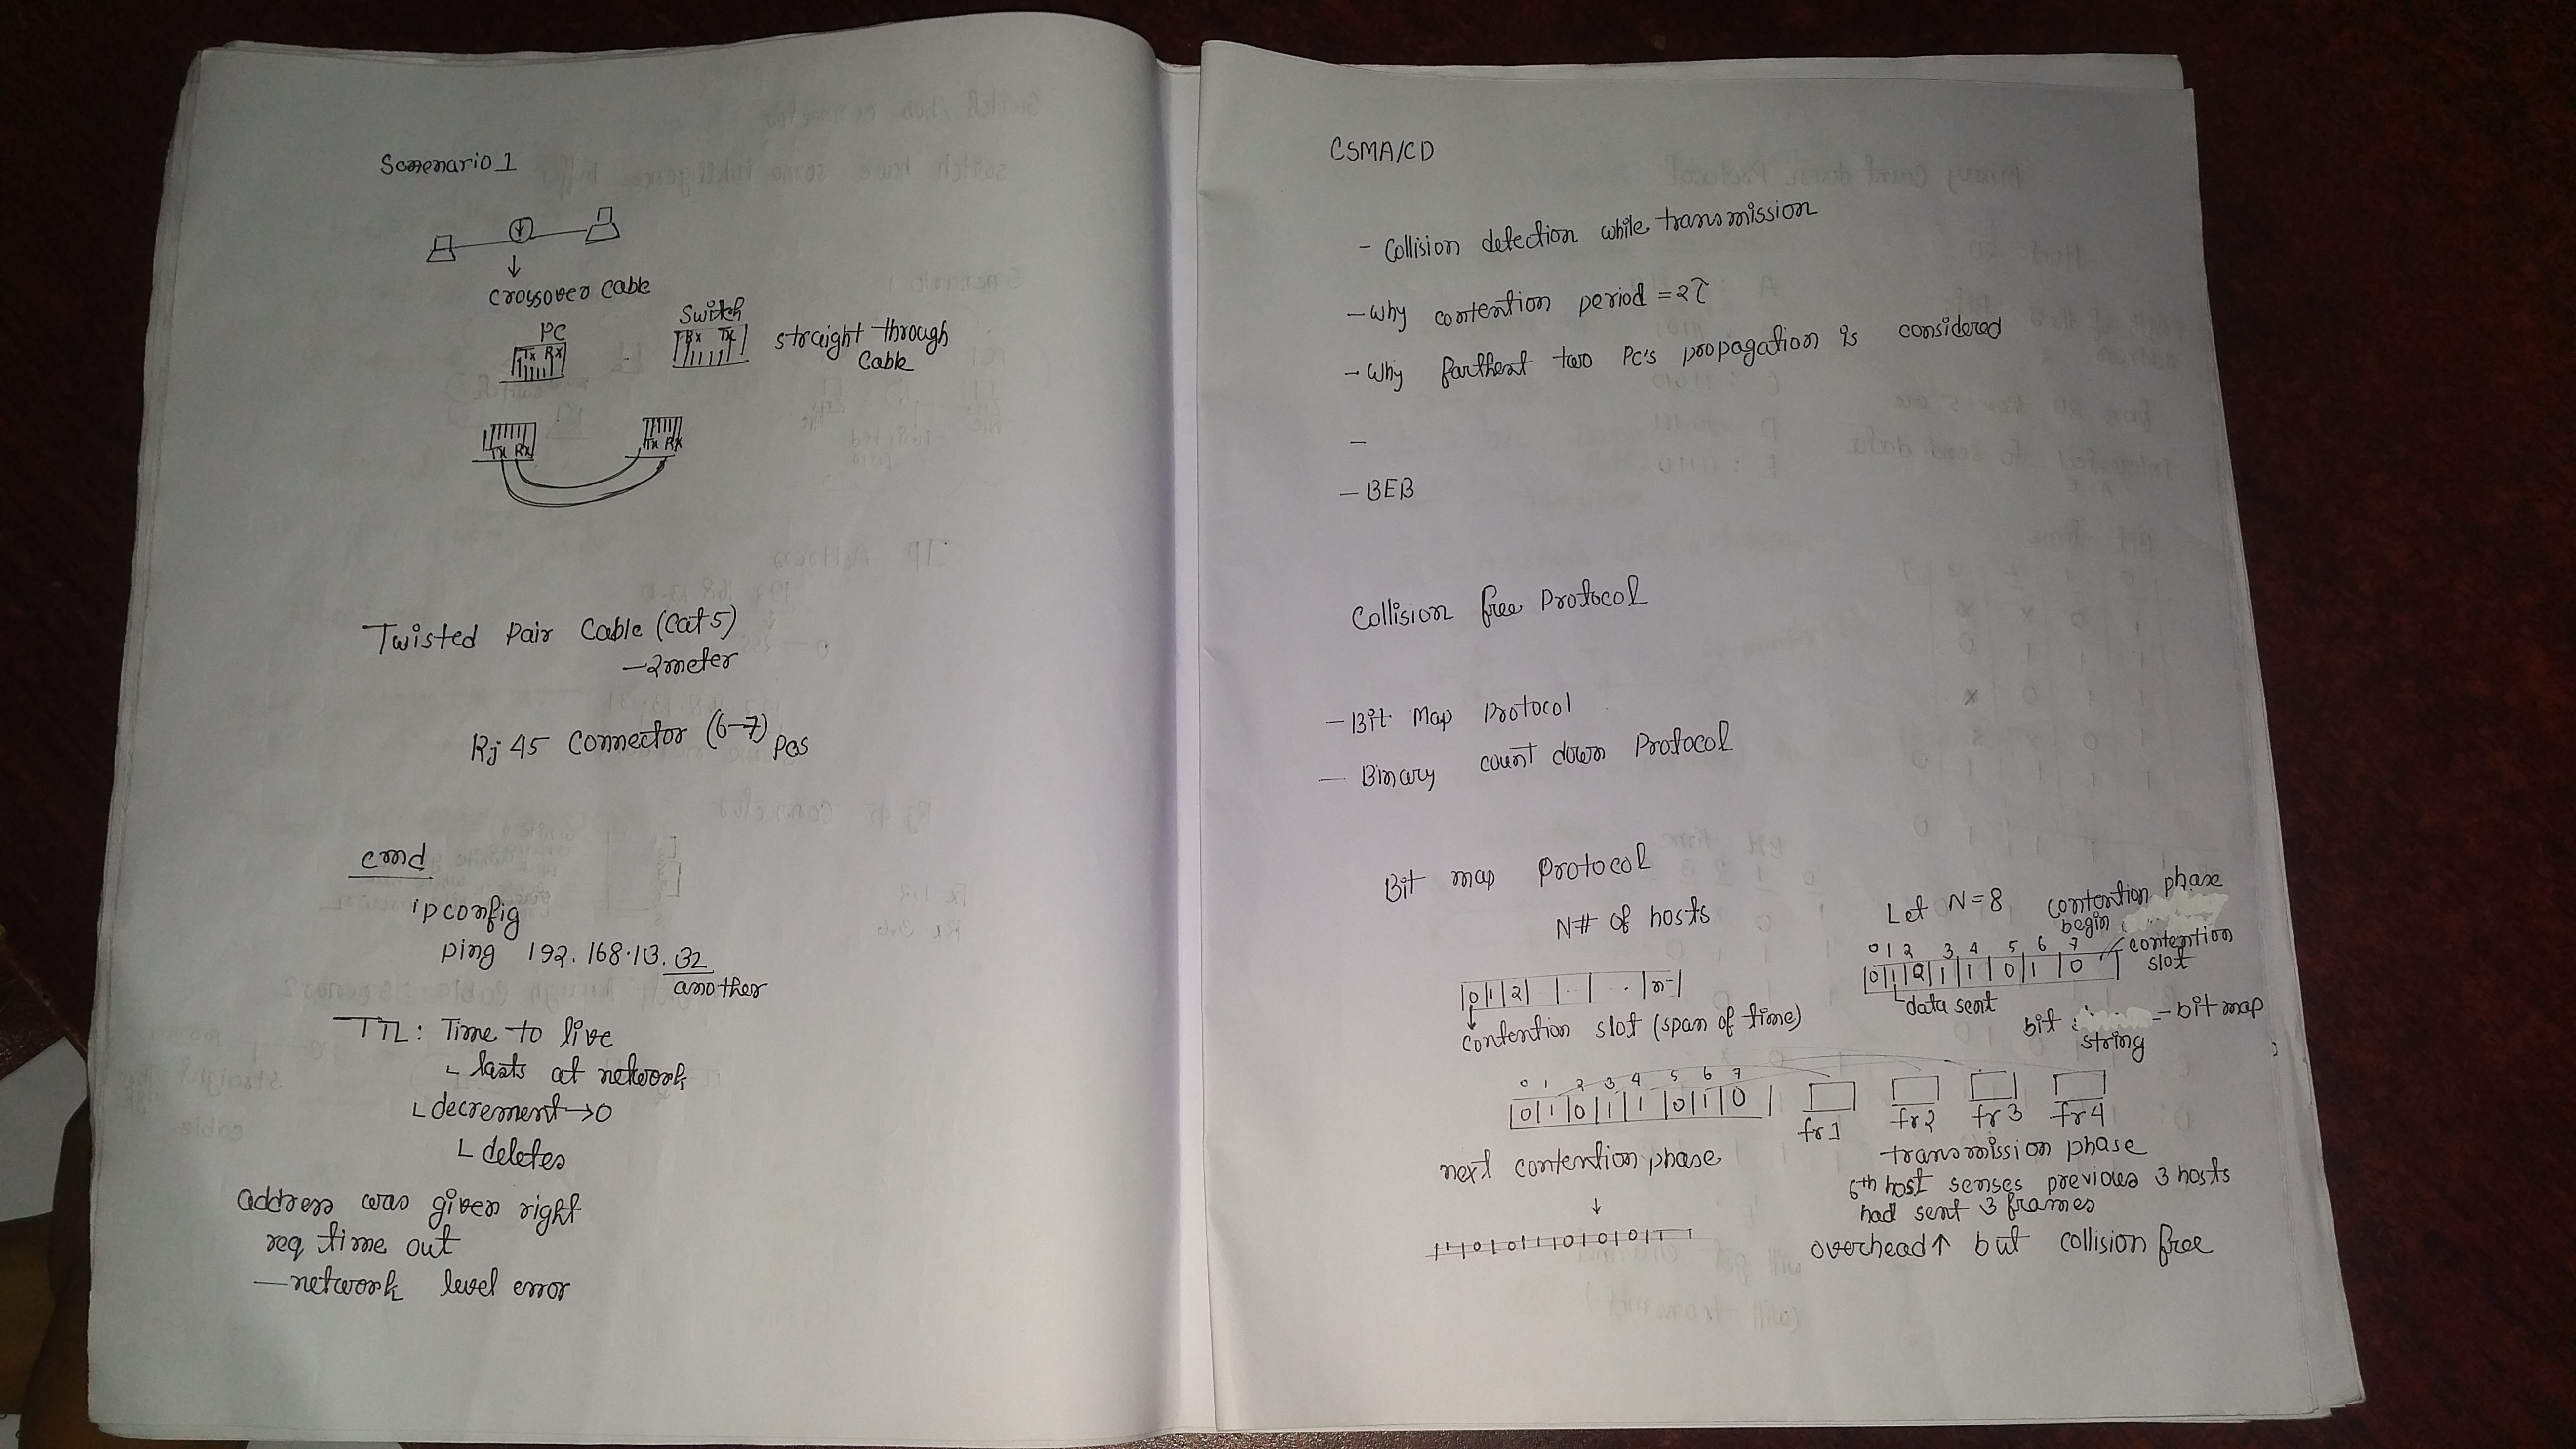 Scenario 1
crossover cable
PC
Tx Rx
Switch
Rx Tx
straight through
cable
Tx Rx
Tx Rx
Twisted Pair Cable (cat 5)
— 2 meter
Rj 45 Connector (6-7) Pcs
cmd
ipconfig
ping 192.168.13.32
another
TTL: Time to live
lasts at network
decrement → 0
deletes
address was given right
req time out
— network level error
CSMA/CD
- Collision detection while transmission
- Why contention period = 2τ
- Why farthest two PC's propagation is considered
-
- BEB
Collision free Protocol
- Bit Map Protocol
- Binary count down Protocol
Bit map Protocol
N # of hosts
0 1 2 .. . n-1
contention slot (span of time)
Let N = 8
contention phase
begin
0 1 2 3 4 5 6 7
0 1 0 1 1 0 1 0
contention
slot
data sent
bit string
— bit map
0 1 2 3 4 5 6 7
0 1 0 1 1 0 1 0
fr1 fr2 fr3 fr4
next contention phase
transmission phase
6th host senses previous 3 hosts
had sent 3 frames
overhead ↑ but collision free